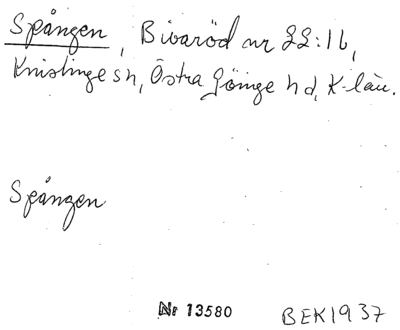 Spången, Bivaröd nr 22:16,
Knislinge sn, Östra Göinge hd, K-län.
Spången
Nr 13580 BEK1937